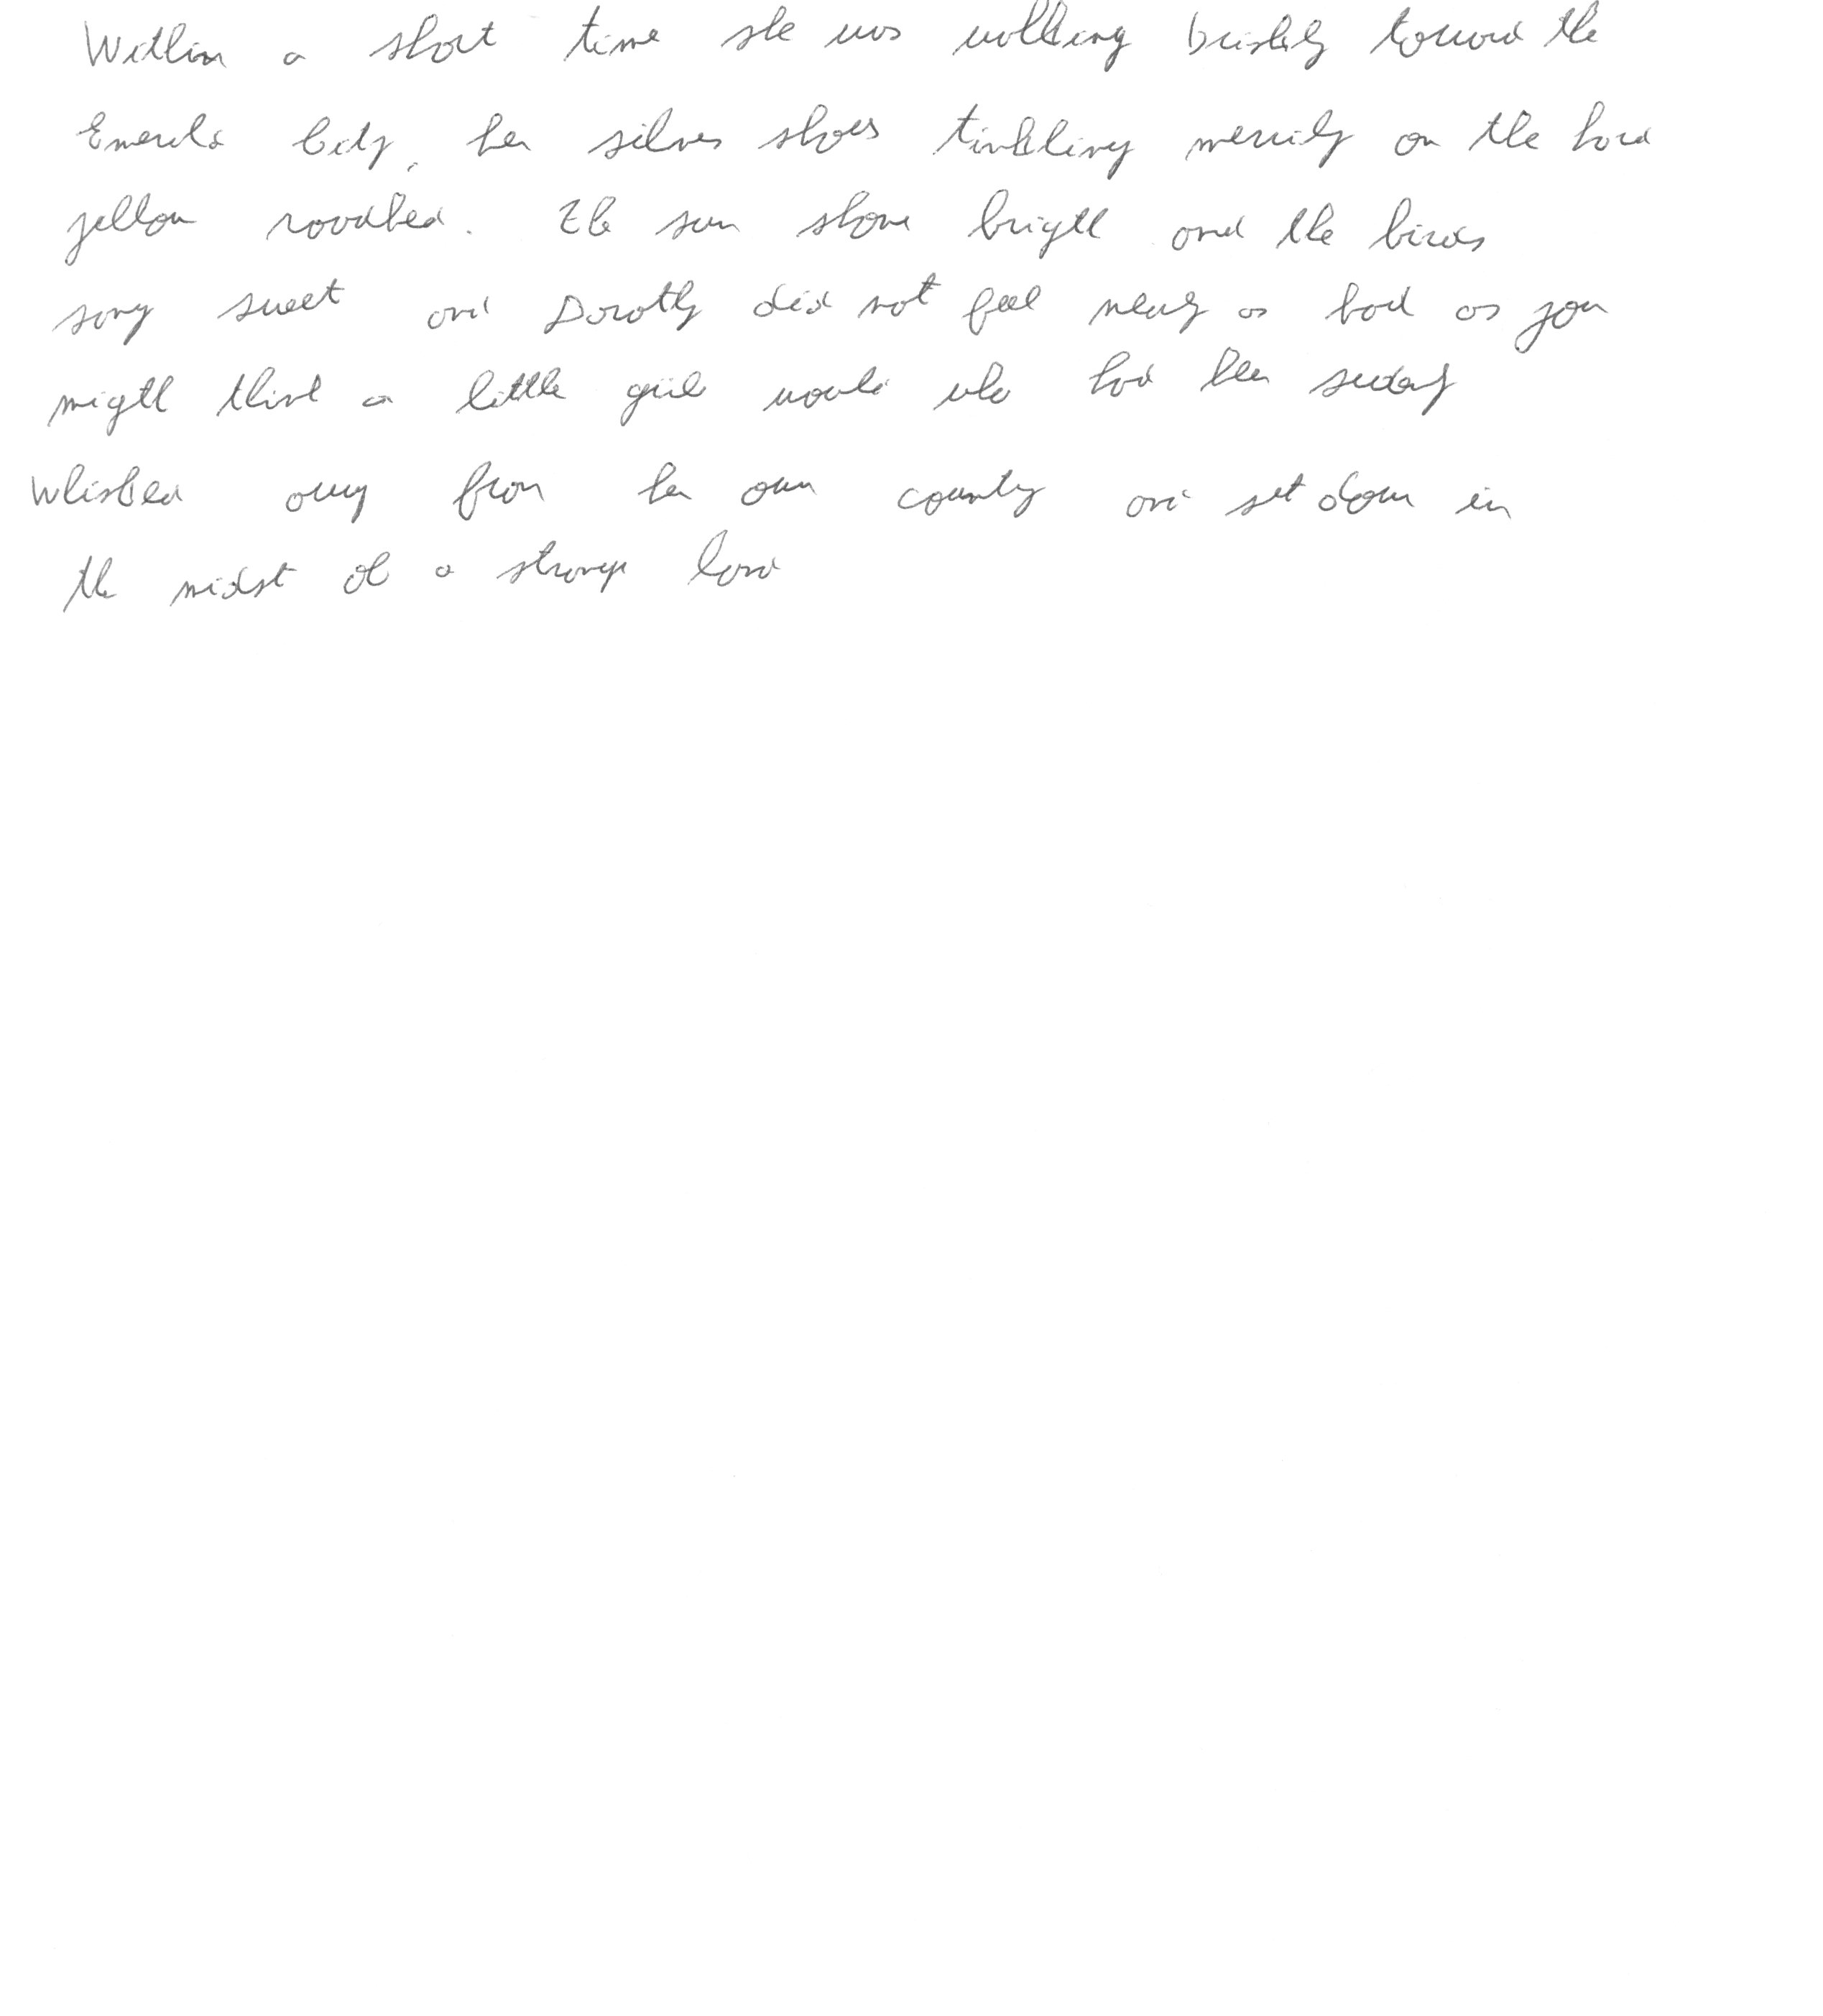 Within a short time she was walking briskly toward the
Emerald City, her silver shoes tinkling merrily on the hard
yellow roadbed. The sun shone bright and the birds
sang sweet and Dorothy did not feel nearly as bad as you
might think a little girl would who had been suddenly
whisked away from her own country and set down in
the midst of a strange land